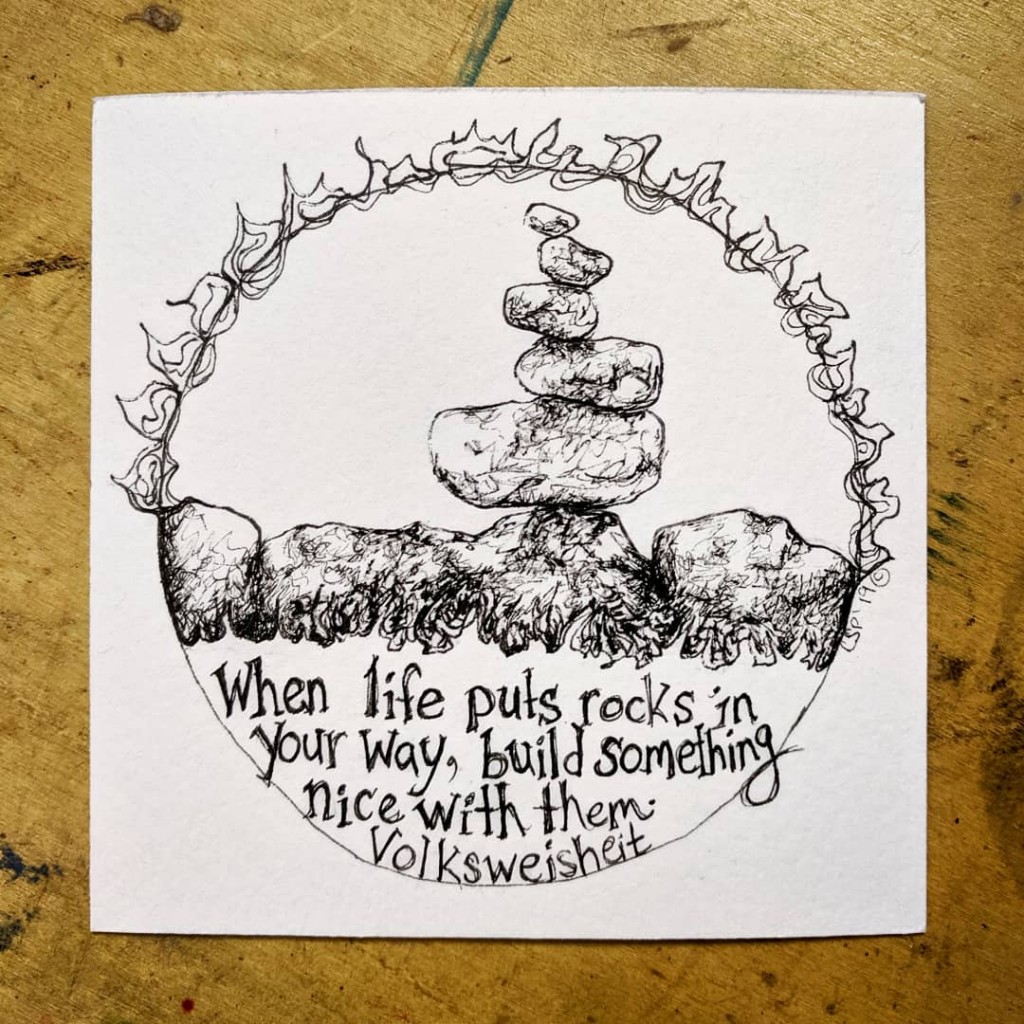 When life puts rocks in
your way, build something
nice with them.
Volksweisheit